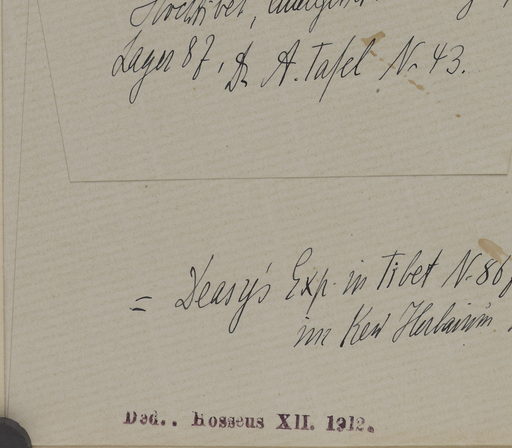 Hochtibet,
Lager 87, Dr A. Tafel Nr 43.
= Deasy's Exp. in Tibet N. 86
im Kew Herbarium
Ded.. Hosseus XII. 1912.